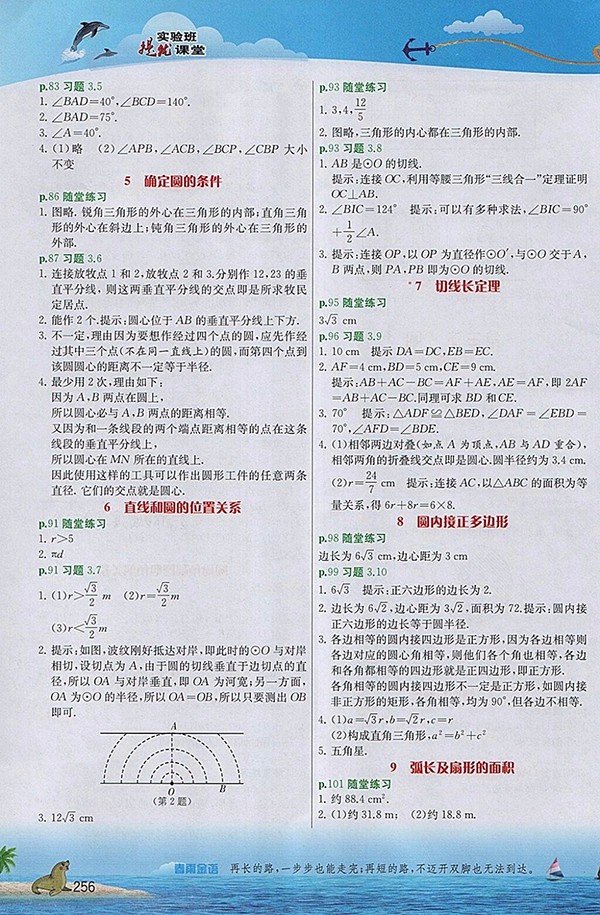 实验班
提优课堂
p.83 习题 3.5
1. ∠BAD=40°,∠BCD=140°.
2. ∠BAD=75°.
3. ∠A=40°.
4. (1)略 (2)∠APB,∠ACB,∠BCP,∠CBP 大小
不变
5 确定圆的条件
p.86 随堂练习
1. 图略. 锐角三角形的外心在三角形的内部;直角三角
形的外心在斜边上;钝角三角形的外心在三角形的
外部.
p.87 习题 3.6
1. 连接放牧点 1 和 2,放牧点 2 和 3.分别作 12,23 的垂
直平分线, 则这两垂直平分线的交点即是所求牧民
定居点.
2. 能作 2 个.提示:圆心位于 AB 的垂直平分线上下方.
3. 不一定,理由因为要想作经过四个点的圆,应先作经
过其中三个点(不在同一直线上)的圆,而第四个点到
该圆圆心的距离不一定等于半径.
4. 最少用 2 次,理由如下:
因为 A,B 两点在圆上,
所以圆心必与 A,B 两点的距离相等.
又因为和一条线段的两个端点距离相等的点在这条
线段的垂直平分线上,
所以圆心在 MN 所在的直线上.
因此使用这样的工具可以作出圆形工件的任意两条
直径. 它们的交点就是圆心.
6 直线和圆的位置关系
p.91 随堂练习
1. r>5
2. πd
p.91 习题 3.7
1. (1)r>√3/2 m (2)r=√3/2 m
(3)r<√3/2 m
2. 提示:如图,波纹刚好抵达对岸,即此时的⊙O 与对岸
相切,设切点为 A,由于圆的切线垂直于过切点的直
径,所以 OA 与对岸垂直,即 OA 为河宽;另一方面,
OA 为⊙O 的半径,所以 OA=OB,所以只要测出 OB
即可.
A
O B
(第 2 题)
3. 12√3 cm
p.93 随堂练习
1. 3,4,12/5
2. 图略,三角形的内心都在三角形的内部.
p.93 习题 3.8
1. AB 是⊙O 的切线.
提示:连接 OC,利用等腰三角形“三线合一”定理证明
OC⊥AB.
2. ∠BIC=124° 提示:可以有多种求法,∠BIC=90°
+1/2∠A.
3. 提示:连接 OP,以 OP 为直径作⊙O′,与⊙O 交于 A,
B 两点,则 PA,PB 即为⊙O 的切线.
7 切线长定理
p.95 随堂练习
3√3 cm
p.96 习题 3.9
1. 10 cm 提示 DA=DC,EB=EC.
2. AF=4 cm,BD=5 cm,CE=9 cm.
提示:AB+AC-BC=AF+AE,AE=AF,即 2AF
=AB+AC-BC.同理可求 BD 和 CE.
3. 70° 提示:△ADF≌△BED,∠DAF=∠EBD=
70°,∠AFD=∠BDE.
4. (1)相邻两边对叠(如点 A 为顶点,AB 与 AD 重合),
相邻两角的折叠线交点即是圆心.圆半径约为 3.4 cm.
(2)r=24/7 cm 提示:连接 AC,以△ABC 的面积为等
量关系,得 6r+8r=6×8.
8 圆内接正多边形
p.98 随堂练习
边长为 6√3 cm,边心距为 3 cm
p.99 习题 3.10
1. 6√3 提示:正六边形的边长为 2.
2. 边长为 6√2,边心距为 3√2,面积为 72.提示:圆内接
正六边形的边长等于圆半径.
3. 各边相等的圆内接四边形是正方形,因为各边相等则
各边对应的圆心角相等,则他们各个角也相等,各边
和各角都相等的四边形就是正四边形,即正方形.
各角相等的圆内接四边形不一定是正方形,如圆内接
非正方形的矩形,各角相等,均为 90°,但各边不相等.
4. (1)a=√3r,b=√2r,c=r
(2)构成直角三角形,a²=b²+c²
5. 五角星.
9 弧长及扇形的面积
p.101 随堂练习
1. 约 88.4 cm².
2. (1)约 31.8 m; (2)约 18.8 m.
春雨金语 再长的路,一步步也能走完;再短的路,不迈开双脚也无法到达。
256